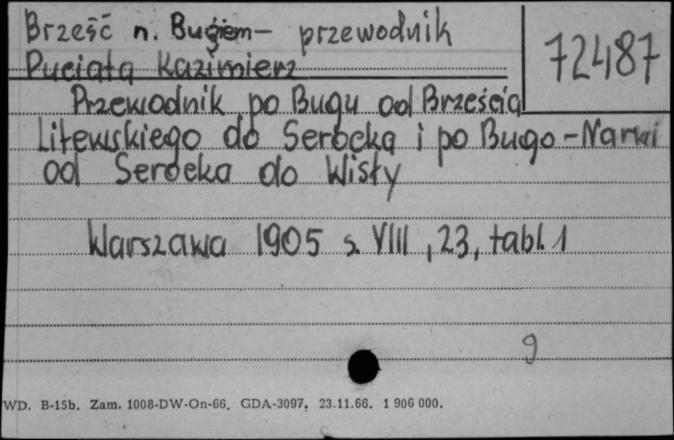 Brześć n. Bugiem — przewodnik
72487
Puciata Kazimierz
Przewodnik po Bugu od Brześcia
Litewskiego do Serocka i po Bugo-Narwi
od Serocka do Wisły
Warszawa 1905 s. VIII, 23, tabl. 1
9
WD. B-15b. Zam. 1008-DW-On-66. GDA-3097, 23.11.66. 1 906 000.